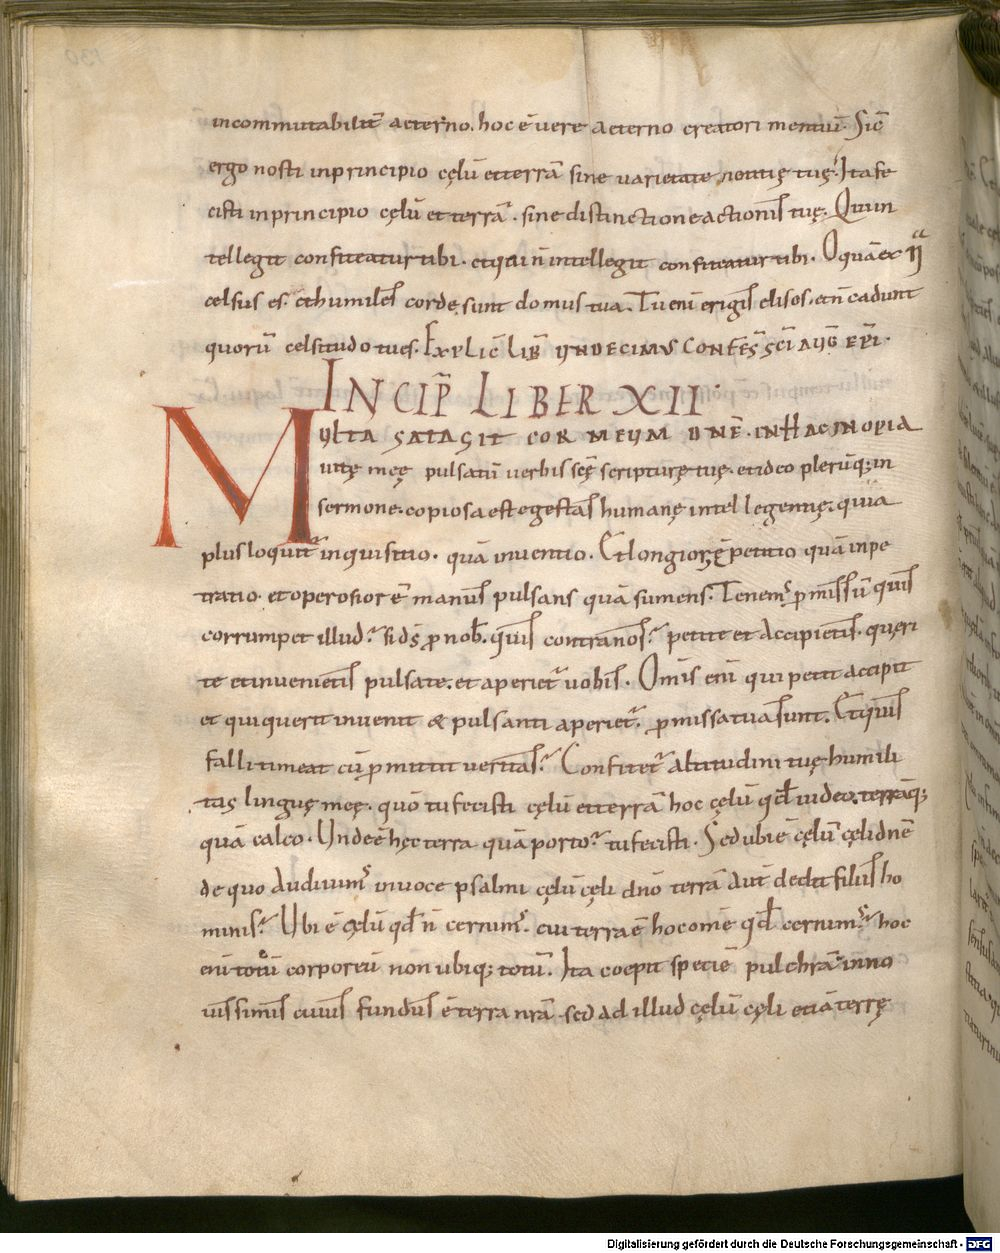 incommutabilit̄ aeterno. hoc ē uere aeterno creatori mentiū. Sic̄
ergo nosti inprincipio cęlū etterrā sine uarietate notitię tuę. Itafe
cisti inprincipio cęlū et terrā. sine distinctione actionis tuę. Quiin
tellegit confiteatur tibi. etqui n̄ intellegit confiteatur tibi. O quā ex
celsus es. ethumiles corde. sunt domus tua. Tu eni erigis elisos. etn̄ cadunt
quorū celsitudo tu es. Explic̄ lib̄ undecimus confes̄ sc̄i auḡ ep̄i.
Incip̄ Liber XII
Multa satagit cor meum dn̄e. in hac inopia
uitę meę pulsatū uerbis sc̄ę scripturę tuę. etideo plerūq; in
sermone. copiosa est egestas humanę intellegentię. quia
plus loquit̄ inquisitio. quā inuentio. Et longior ę̄ petitio quā inpe
tratio. et operosior ē manus pulsans quā sumens. Tenem᷒ p̄missū quis
corrumpet illud? si ds̄ p̄ nob̄. quis contranos? petite et accipietis. queri
te etinuenietis pulsate. et aperiet̄ uobis. Omīs enī qui petit accipit
et qui querit inuenit & pulsanti aperiet̄. p̄missa tua sunt. Et quis
falli timeat cū p̄mittit ueritas? Confitet̄ altitudini tuę humili
tas linguę meę. quō tu fecisti cęlū etterrā hoc cęlū qd̄ uideo. terrāq;
quā calco. Unde ē hęc terra quā porto? tu fecisti. Sed ubi ē cęlū cęli dn̄e
de quo audiuim᷒ in uoce psalmi cęlū cęli dn̄o terrā aut̄ dedit filiis ho
minis? Ubi ē cęlū qd̄ n̄ cernim᷒. cui terra ē hoc omē qd̄ cernim᷒? hoc
enī totū corporeū non ubiq; totū. Ita coepit speciē pulchrā inno
uissimis cuius fundus ē terra nr̄a. sed ad illud cęlū cęli etiā terrę
130
Digitalisierung gefördert durch die Deutsche Forschungsgemeinschaft - DFG